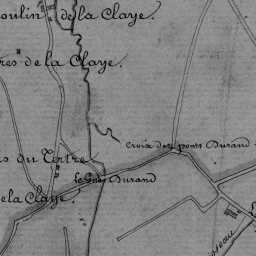 oulin de la Claye.
res de la Claye.
Croix des ponts Durand
s du Tertre
le Gué Durand
de la Claye.
isseau